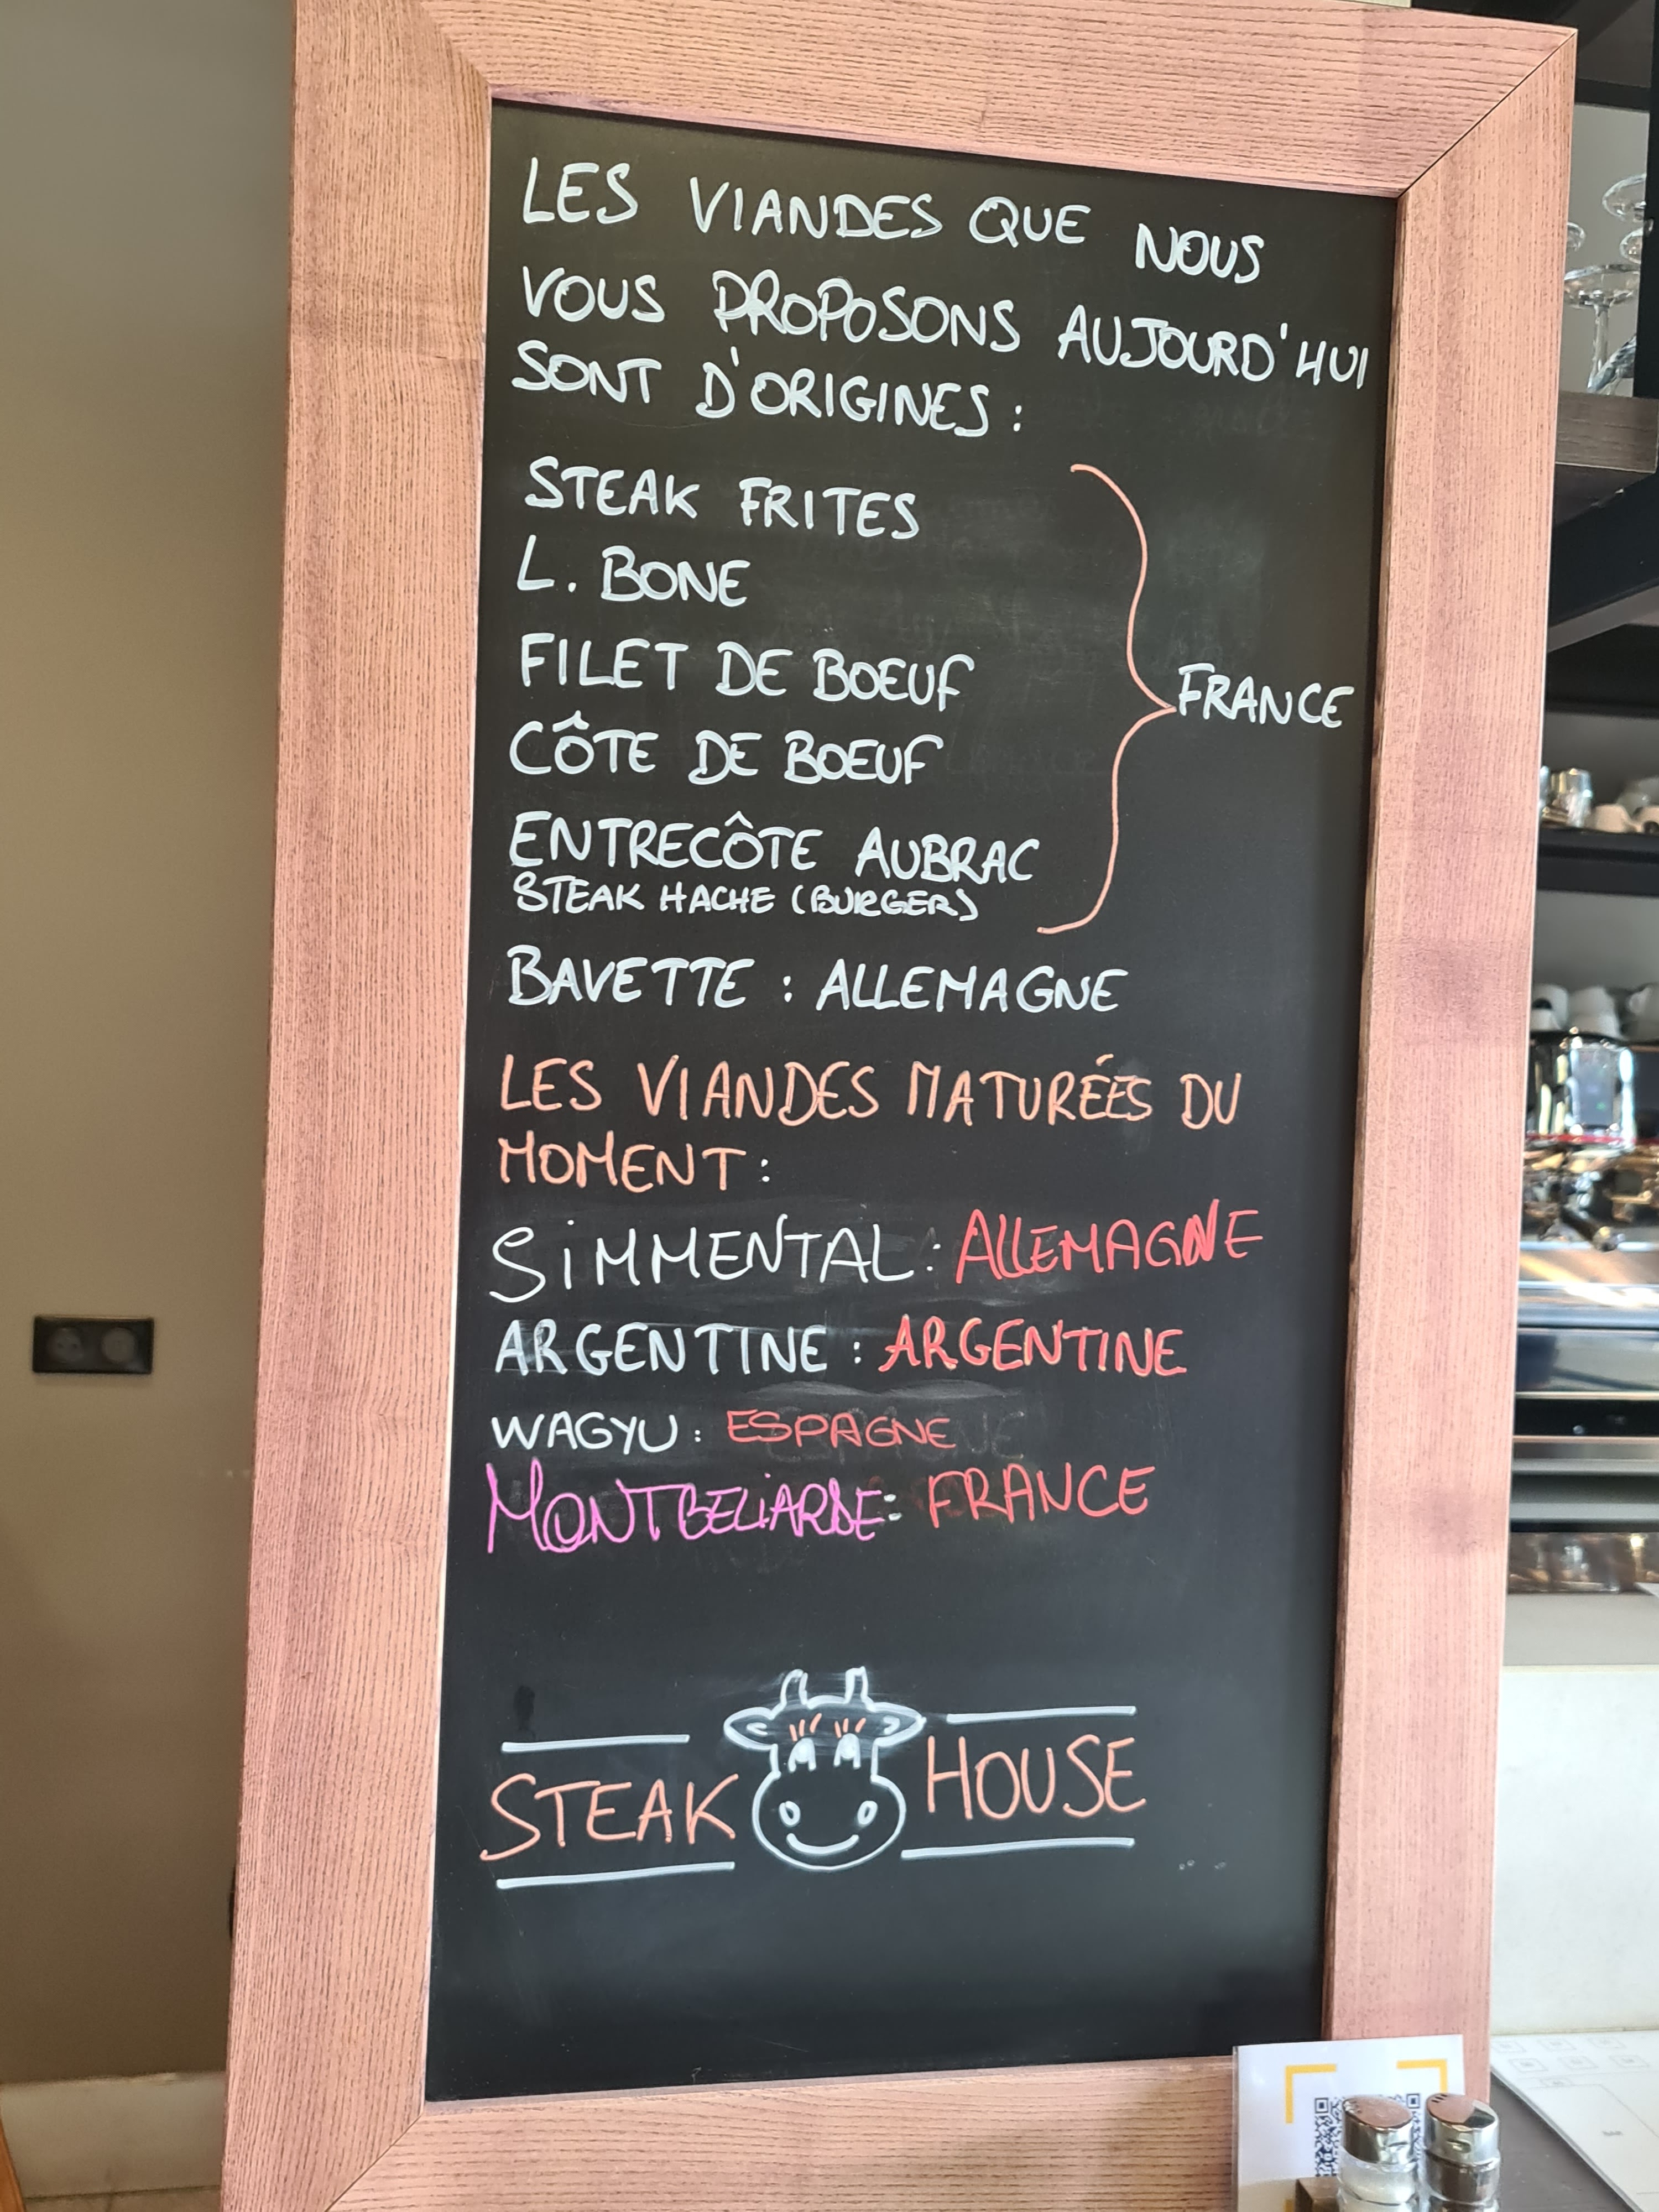 LES VIANDES QUE NOUS
VOUS PROPOSONS AUJOURD'HUI
SONT D'ORIGINES :
STEAK FRITES
L. BONE
FILET DE BOEUF
CÔTE DE BOEUF
ENTRECÔTE AUBRAC
STEAK HACHE (BURGER)
FRANCE
BAVETTE : ALLEMAGNE
LES VIANDES MATURÉES DU
MOMENT :
SiMMENTAL : ALLEMAGNE
ARGENTINE : ARGENTINE
WAGYU : ESPAGNE
MONTBELiARDE : FRANCE
STEAK HOUSE